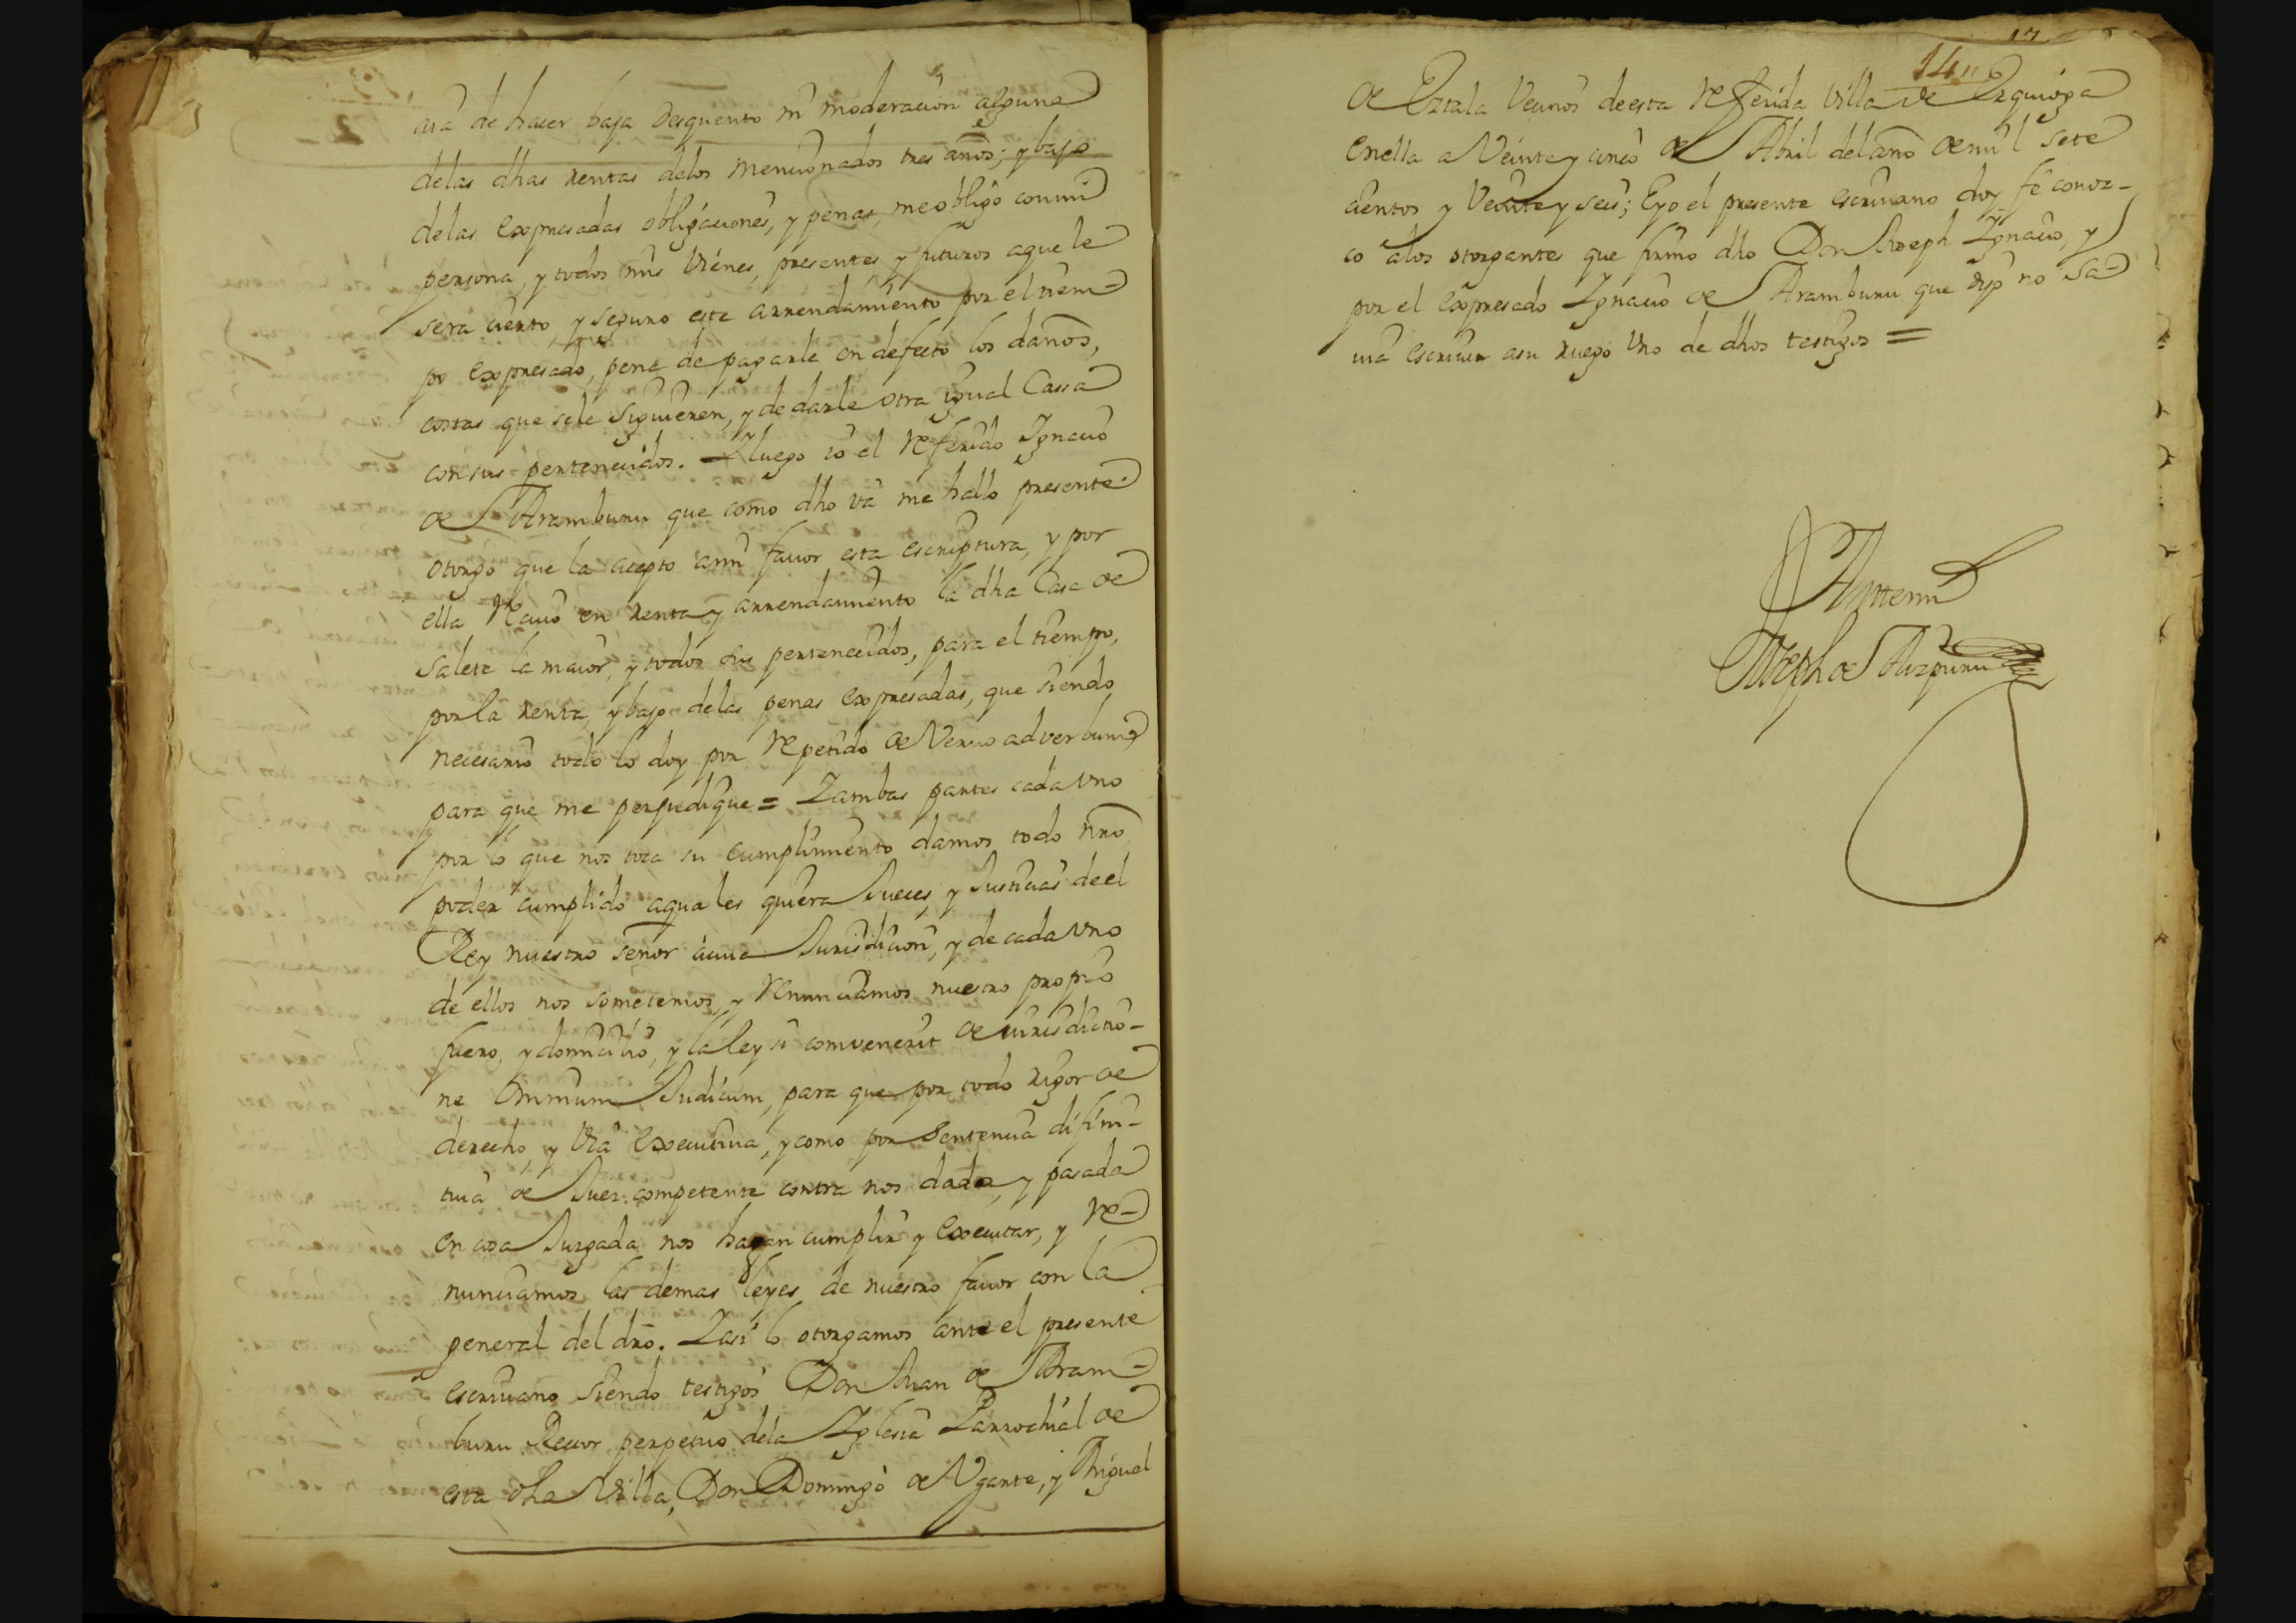 cia de hacer baja desquento ni moderacion alguna
de las dhas rentas delos mencionados tres años; y bajo
de las expresadas obligaciones, y penas, me obligo con mi
persona, y todos mis vienes, presentes y futuros aque le
sera cierto y seguro este arrendamiento por el tiem-
po expresado, pena de pagarle en defecto los daños,
costas que sele siguieren, y de darle otra igual Cassa
con sus pertenecidos. Y luego io el referido Ignacio
de Aramburu que como dho va me hallo presente
otorgo que la acepto ami favor esta escriptura, y por
ella Recivo en renta y arrendamiento la dha Casa de
Salete la maior, y todos sus pertenecidos, para el tiempo,
por la renta, y bajo delas penas expresadas, que siendo
necesario todo lo doy por repetido de Vervo adverbum
para que me perjudique = Yambas partes cada uno
por lo que nos toca su cumplimiento damos todo nro
poder cumplido aqua les quiera Jueces, y Justicias de el
Rey nuestro señor acuia Jurisdicion, y de cada uno
de ellos nos sometemos, y renunciamos nuestro proprio
fuero, y domicilio, y la ley si comvenerit de iurisdictio-
ne Omnium Judicum, para que por todo rigor de
derecho, y Via executiva, y como por Sentencia difini-
tiva de Juez competente contra nos dada, y pasada
en cosa Juzgada nos hagan cumplir y executar, y re-
nunciamos las demas leyes de nuestro favor con la
general del dro. Yasi lo otorgamos ante el presente
escrivano siendo testigos Don Juan de Aram-
buru Rector perpetuo dela Yglesia Parrochial de
esta dha Villa, Don Domingo de Ygarte, y Miguel
14
de Eztala Vecinos de esta referida Villa de Ezquioga
en ella a Veinte y cinco de Abril del año de mil sete
cientos y Veinte y seis; Eyo el presente escrivano doy fe conoz-
co alos otorgantes que firmo dho Don Joseph Ygnacio, y
por el expresado Ignacio de Aramburu que dijo no sa-
via escrivir asu ruego Uno de dhos testigos =
Antemi
Joseph de Aizpuru